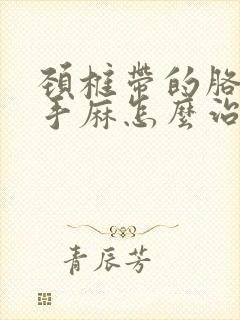 頚椎帶的胳
手麻怎麼治
青辰芳